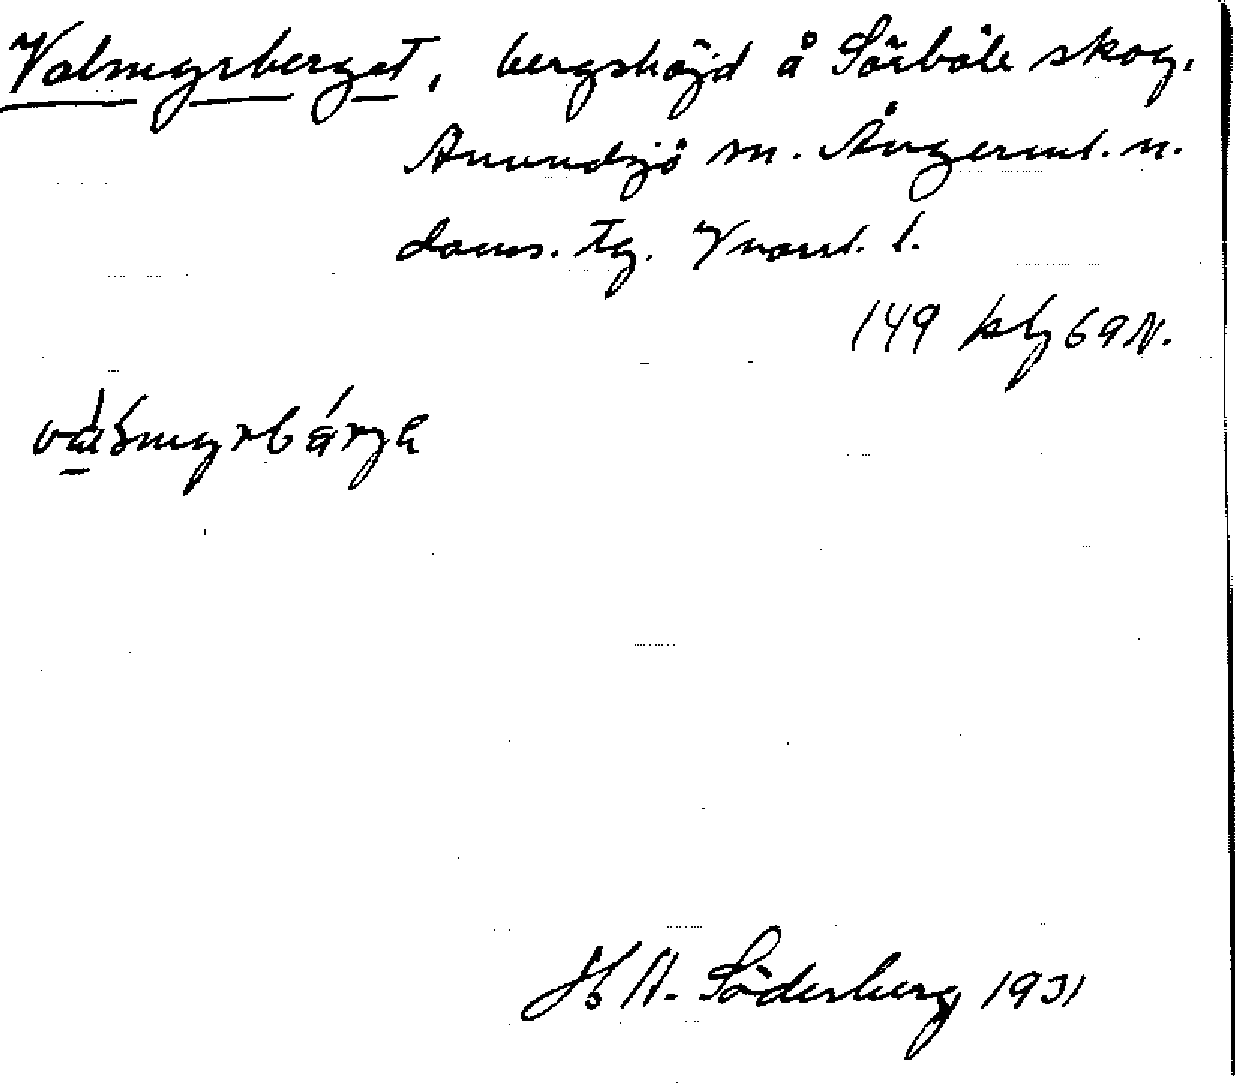 Valmyrberget, bergshöjd å Sörböle skog,
Anundsjö sn. Ångerml. n.
doms. tg. Vnorrl. l.
149 kbl 69 N.
H A. Söderberg 1931